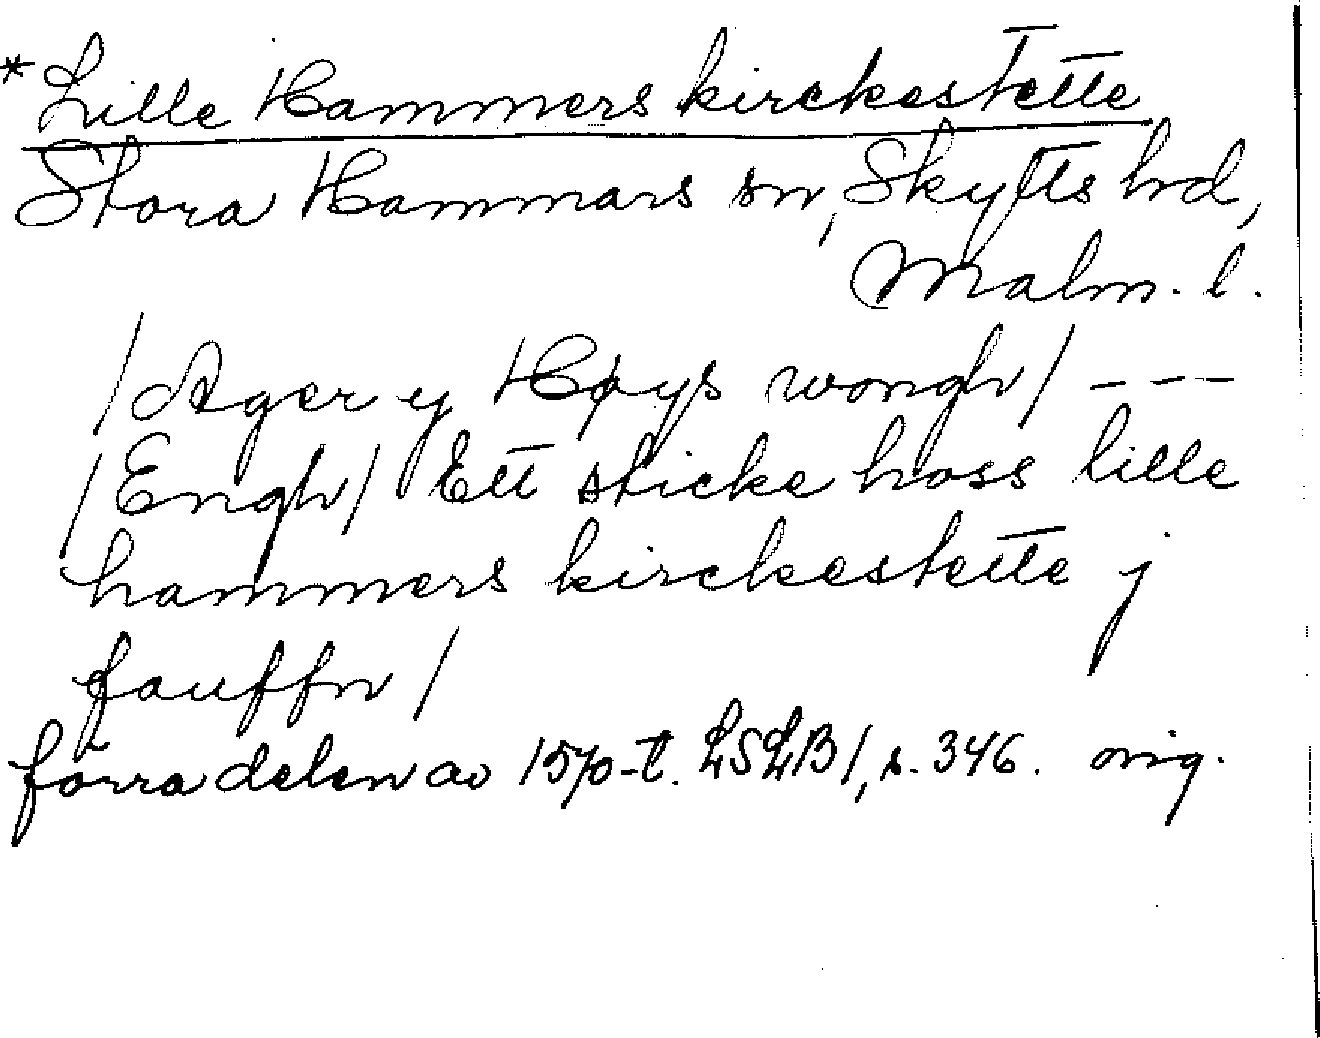 * Lille Hammers kirckestette
Stora Hammars sn, Skytts hrd,
Malm. l.
/Ager y Høys wongh/ ---
/Engh/ Ett sticke hoss lille
hammers kirckestette j
fauffn/
förra delen av 1570-t. LSLB1, s. 346. orig.